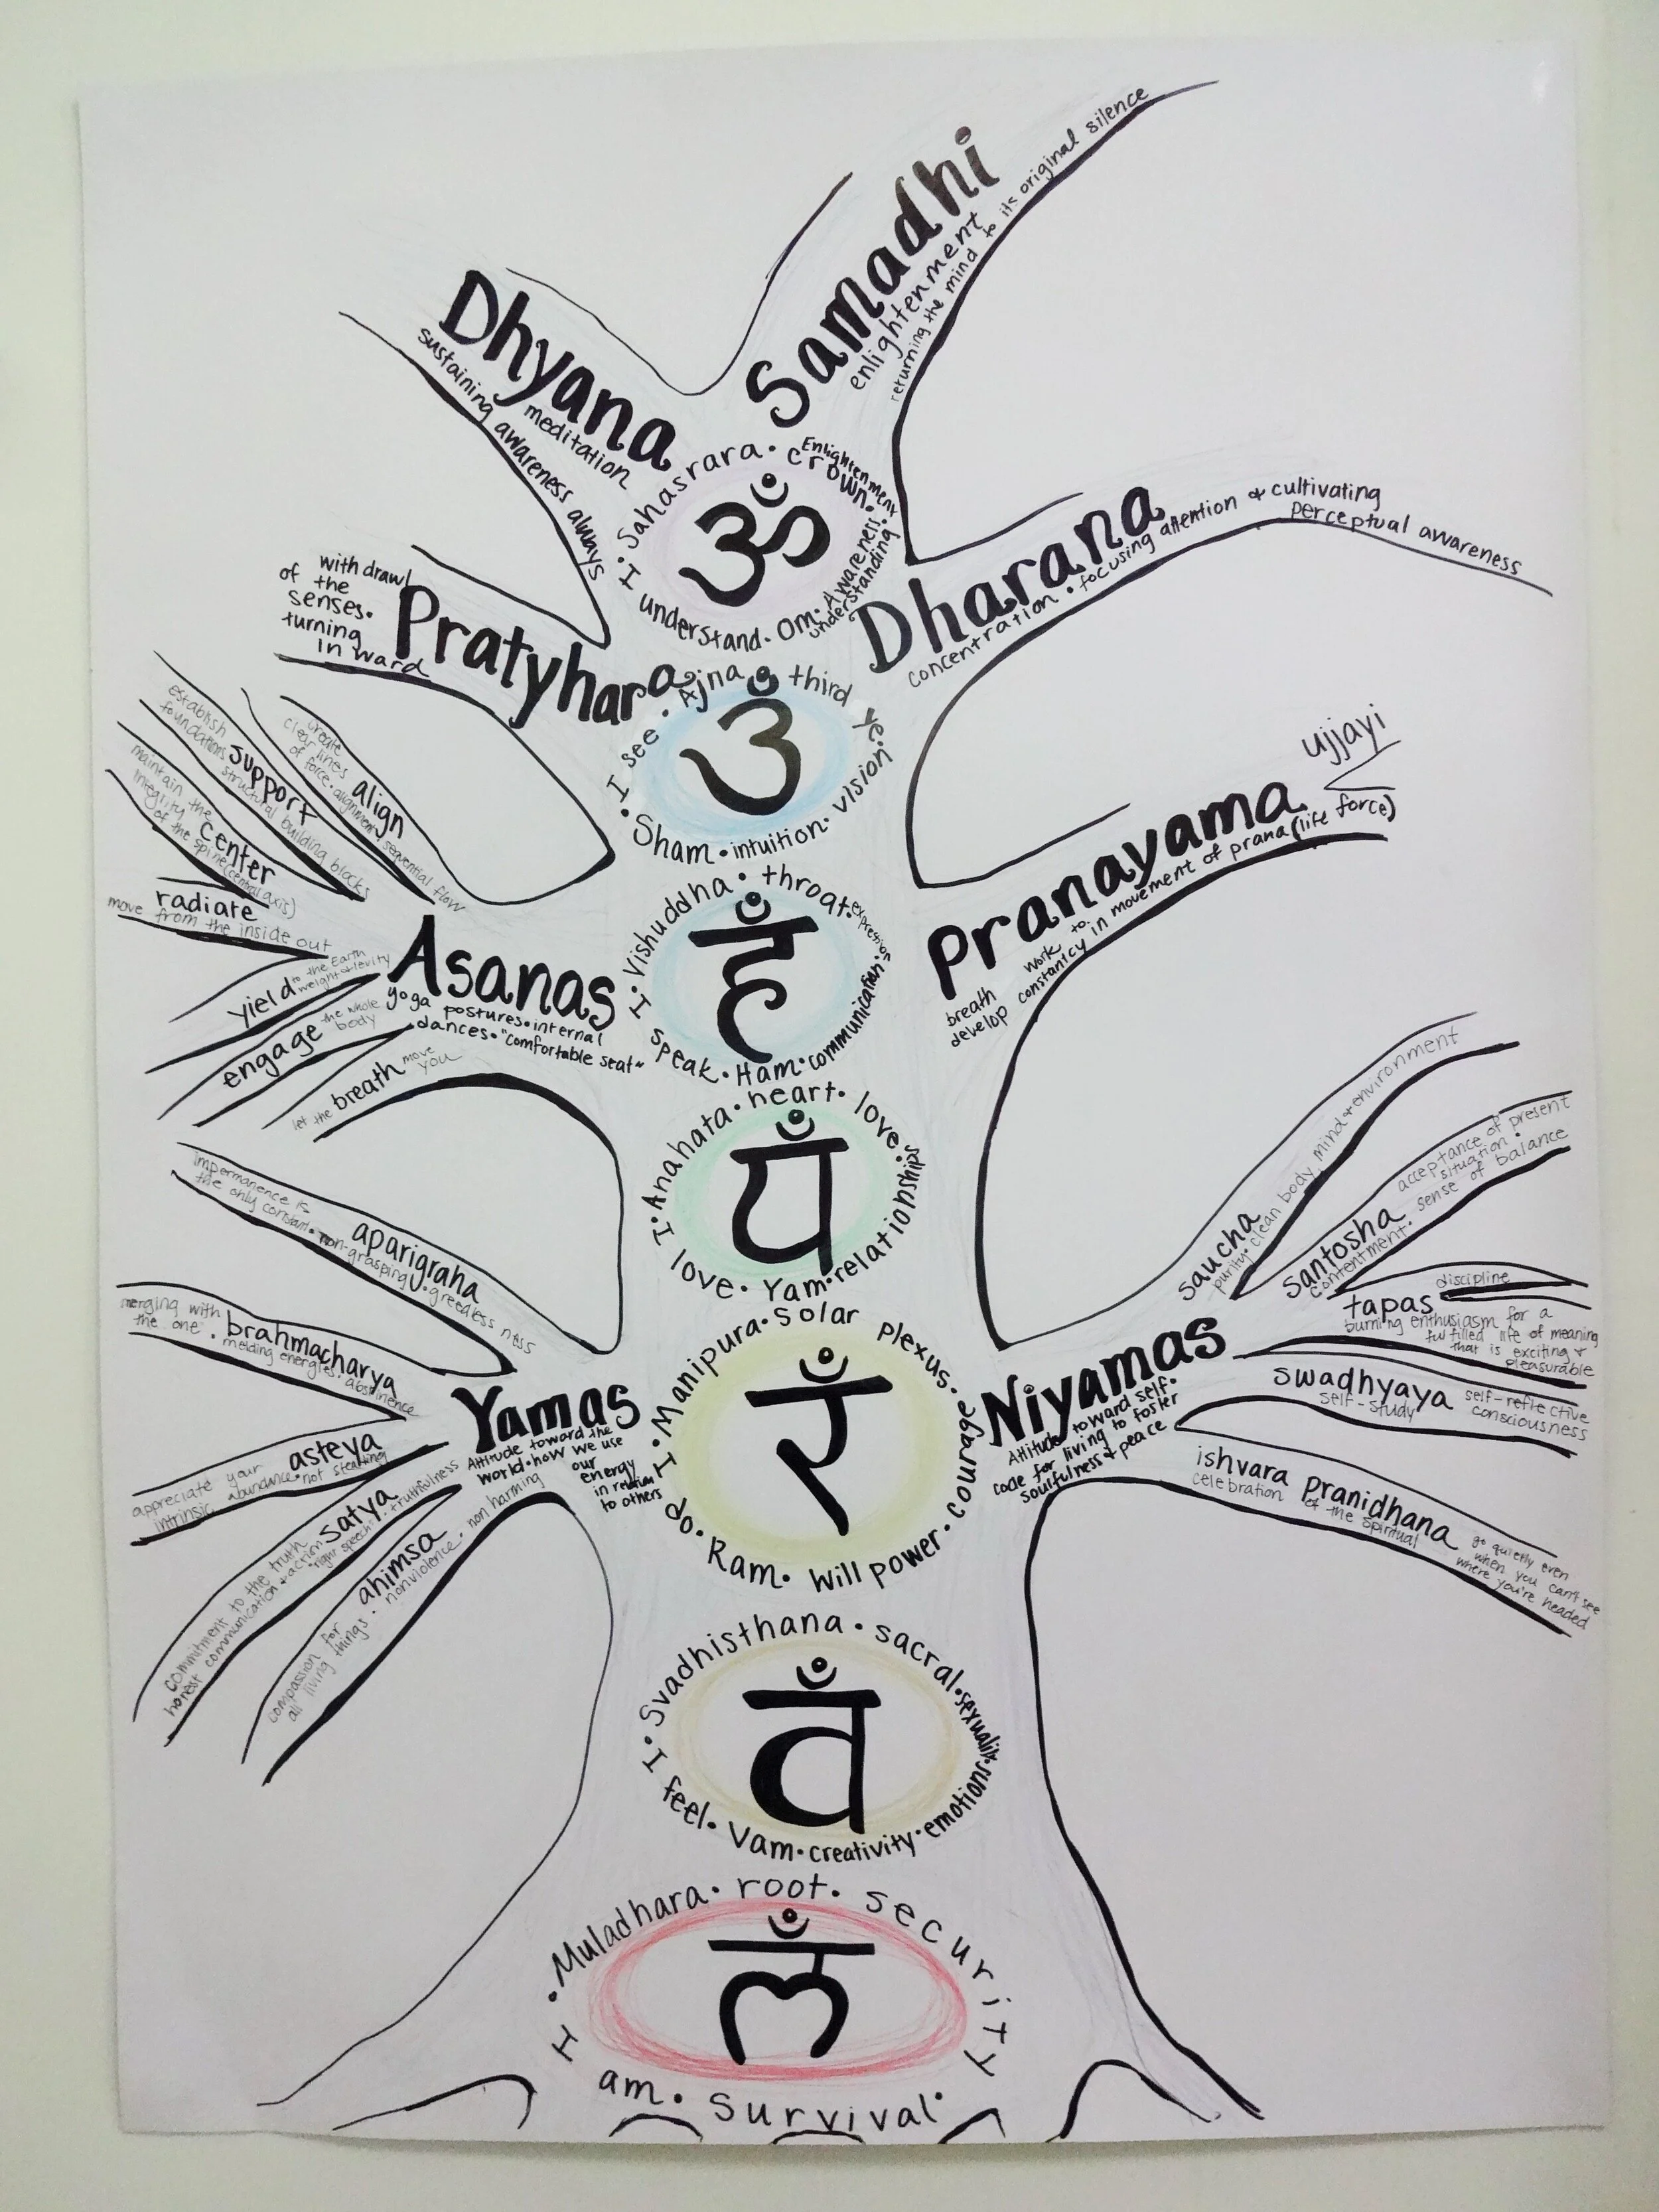 Samadhi
enlightenment
returning the mind to its original silence
Dhyana
meditation
sustaining awareness always
Sahasrara · crown · Enlightenment
Awareness · understanding · Om · I understand ·
ॐ
Dharana
concentration · focusing attention & cultivating
perceptual awareness
Pratyhara
withdrawl
of the
senses.
turning
inward
Ajna · third eye
vision · intuition · Sham · I see ·
Pranayama
ujjayi
breath work to
develop constancy in movement of prana (life force)
Vishuddha · throat · expression
communication · Ham · I speak ·
हं
Asanas
yoga postures · internal
dances · "comfortable seat"
align
create
clear lines
of force · alignment sequential flow
support
establish
foundations structural building blocks
center
maintain the
integrity
of the spine (central axis)
radiate
move from the inside out
yield to the Earth
weight & levity
engage the whole
body
let the breath move
you
Anahata · heart · love ·
relationships · Yam · I love ·
यं
Niyamas
Attitude toward self ·
code for living to foster
soulfulness & peace
saucha
purity · clean body, mind & environment
santosha
contentment · sense of balance
acceptance of present
situation ·
tapas
discipline
burning enthusiasm for a
fulfilled life of meaning
that is exciting &
pleasurable
swadhyaya
self-study
self-reflective
consciousness
ishvara pranidhana
celebration of the spiritual
go quietly even
when you can't see
where you're headed
Yamas
Attitude toward the
world · how we use
our
energy
in relation
to others
aparigraha
impermanence is
the only constant · non-grasping · greedlessness
brahmacharya
merging with
the one · melding energies · abstinence
asteya
appreciate your
intrinsic abundance · not stealing
satya
truthfulness
commitment to the truth
honest communication & action "right speech"
ahimsa
non harming
compassion for
all living things · nonviolence
Manipura · Solar plexus ·
courage · Will power · Ram · I do ·
रं
Svadhisthana · sacral · sexuality ·
emotions · creativity · Vam · I feel ·
वं
Muladhara · root · security
I am · Survival ·
लं